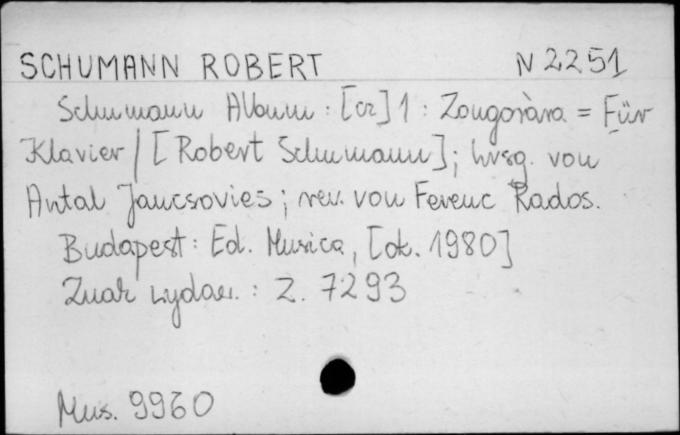 SCHUMANN ROBERT N 2251
Schumann Album : [cz] 1 : Zongoràra = Für
Klavier / [Robert Schumann] ; hrsg. von
Antal Jancsovics ; rev. von Ferenc Rados.
Budapest : Ed. Musica, [ok. 1980]
Znak wydaw. : Z. 7293
Mus. 9960